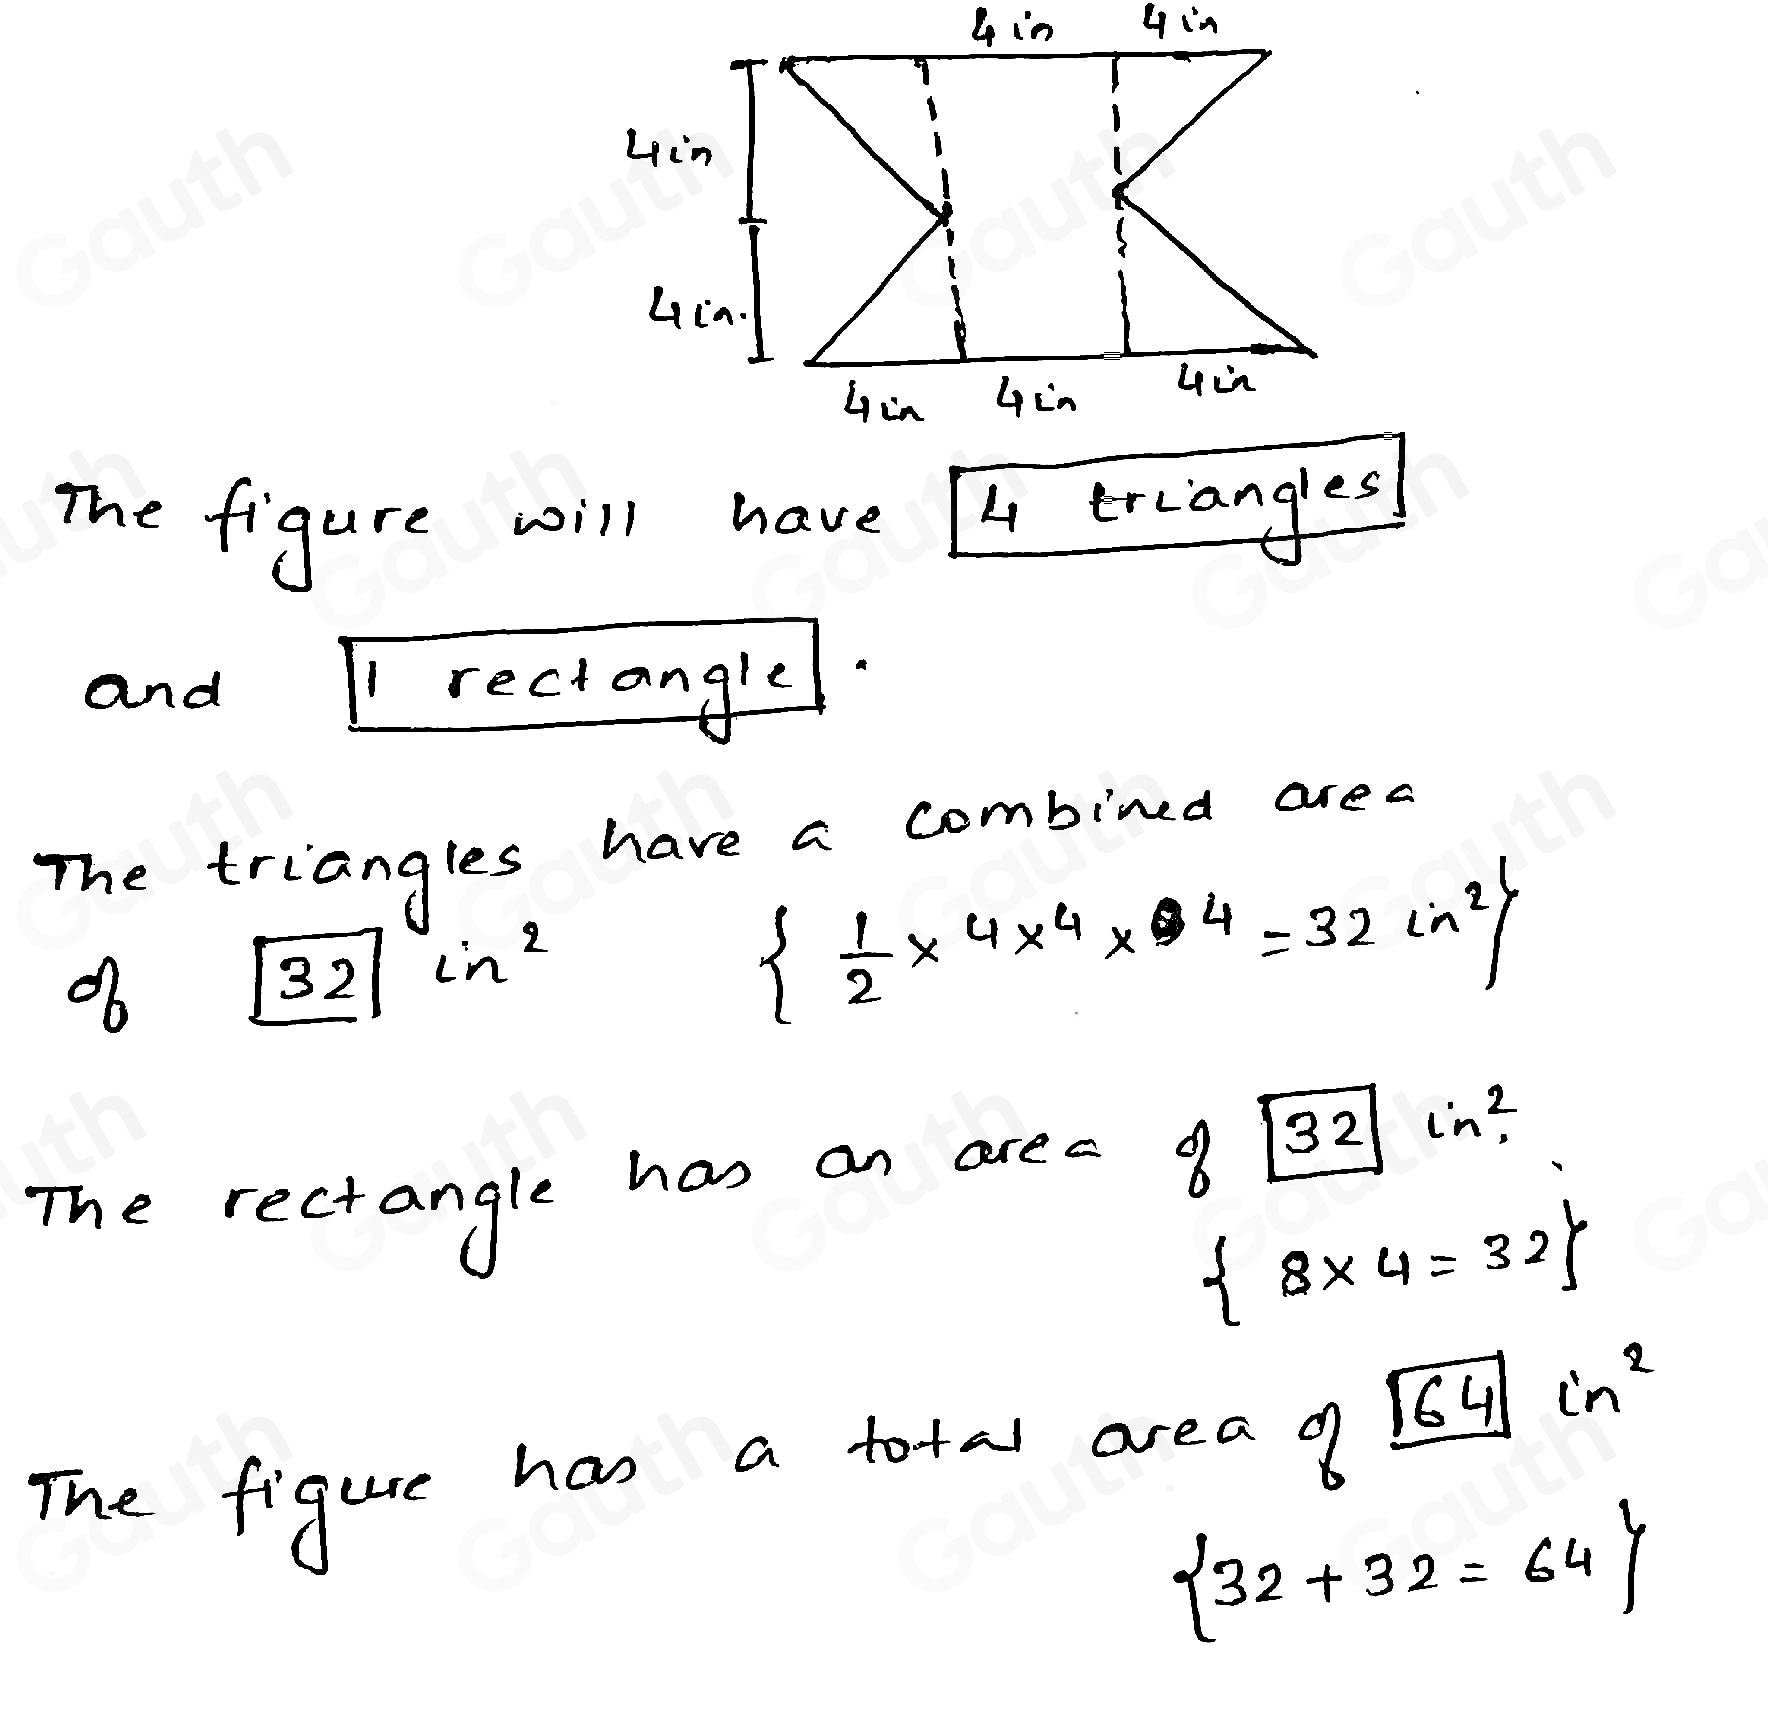 4 in 4 in
4 in
4 in.
4 in 4 in 4 in
The figure will have 4 triangles
and 1 rectangle.
The triangles have a combined area
of 32 in² { 1/2 × 4 × 4 × 4 = 32 in² }
The rectangle has an area of 32 in².
{ 8 × 4 = 32 }
The figure has a total area of 64 in²
{ 32 + 32 = 64 }
Gauth